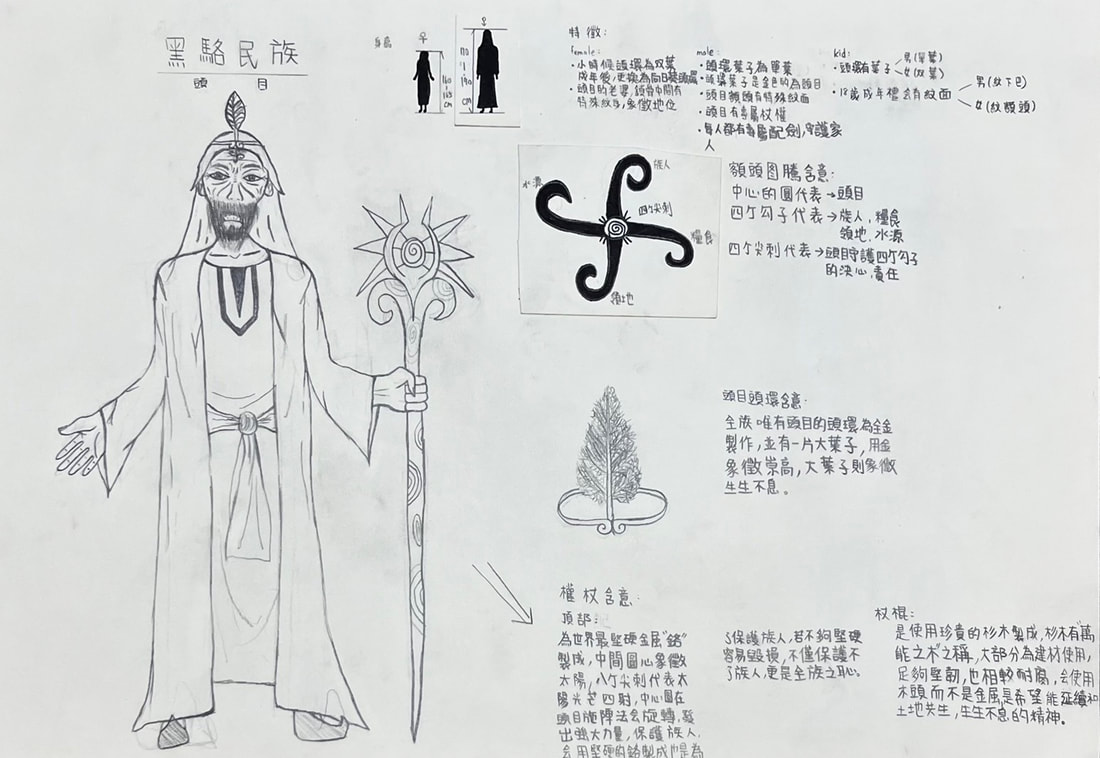 黑駱民族
頭 目
身高
160
165
cm
170
190
cm
特徵:
female:
・小時候頭環為双葉
成年後,更換為向日葵頭環
・頭目的老婆,
特殊紋身,象徵地位
male:
・頭環葉子為單葉
・頭環葉子是金色的為頭目
・頭目額頭有特殊紋面
・頭目有專屬杖權
・每人都有專屬配劍,守護家
人
kid:
・頭環有葉子
男(單葉)
女(双葉)
・12歲成年禮會有紋面
男(紋下巴)
女(紋額頭)
族人
水源
四个尖刺
糧食
領地
額頭图騰含意:
中心的圓代表→頭目
四个勾子代表→族人,糧食
領地,水源
四个尖刺代表→頭目守護四个勾子
的決心,責任
頭目頭環含意:
全族唯有頭目的頭環為全金
製作,並有一片大葉子,用金
象徵崇高,大葉子則象徵
生生不息。
權杖含意:
頂部:
為世界最堅硬金属"鉻"
製成,中間圓心象徵
太陽,八个尖刺代表太
陽光芒四射,中心圓在
頭目施陣法会旋轉,發
出強大力量,保護族人,
会用堅硬的鉻製成是為
保護族人,若不夠堅硬
容易毀損,不僅保護不
了族人,更是全族之恥。
杖棍:
是使用珍貴的杉木製成,杉木有"萬
能之木"之稱,大部分為建材使用,
足夠堅韌,也相較耐腐,会使用
木頭而不是金属是希望能延續和
土地共生,生生不息的精神。